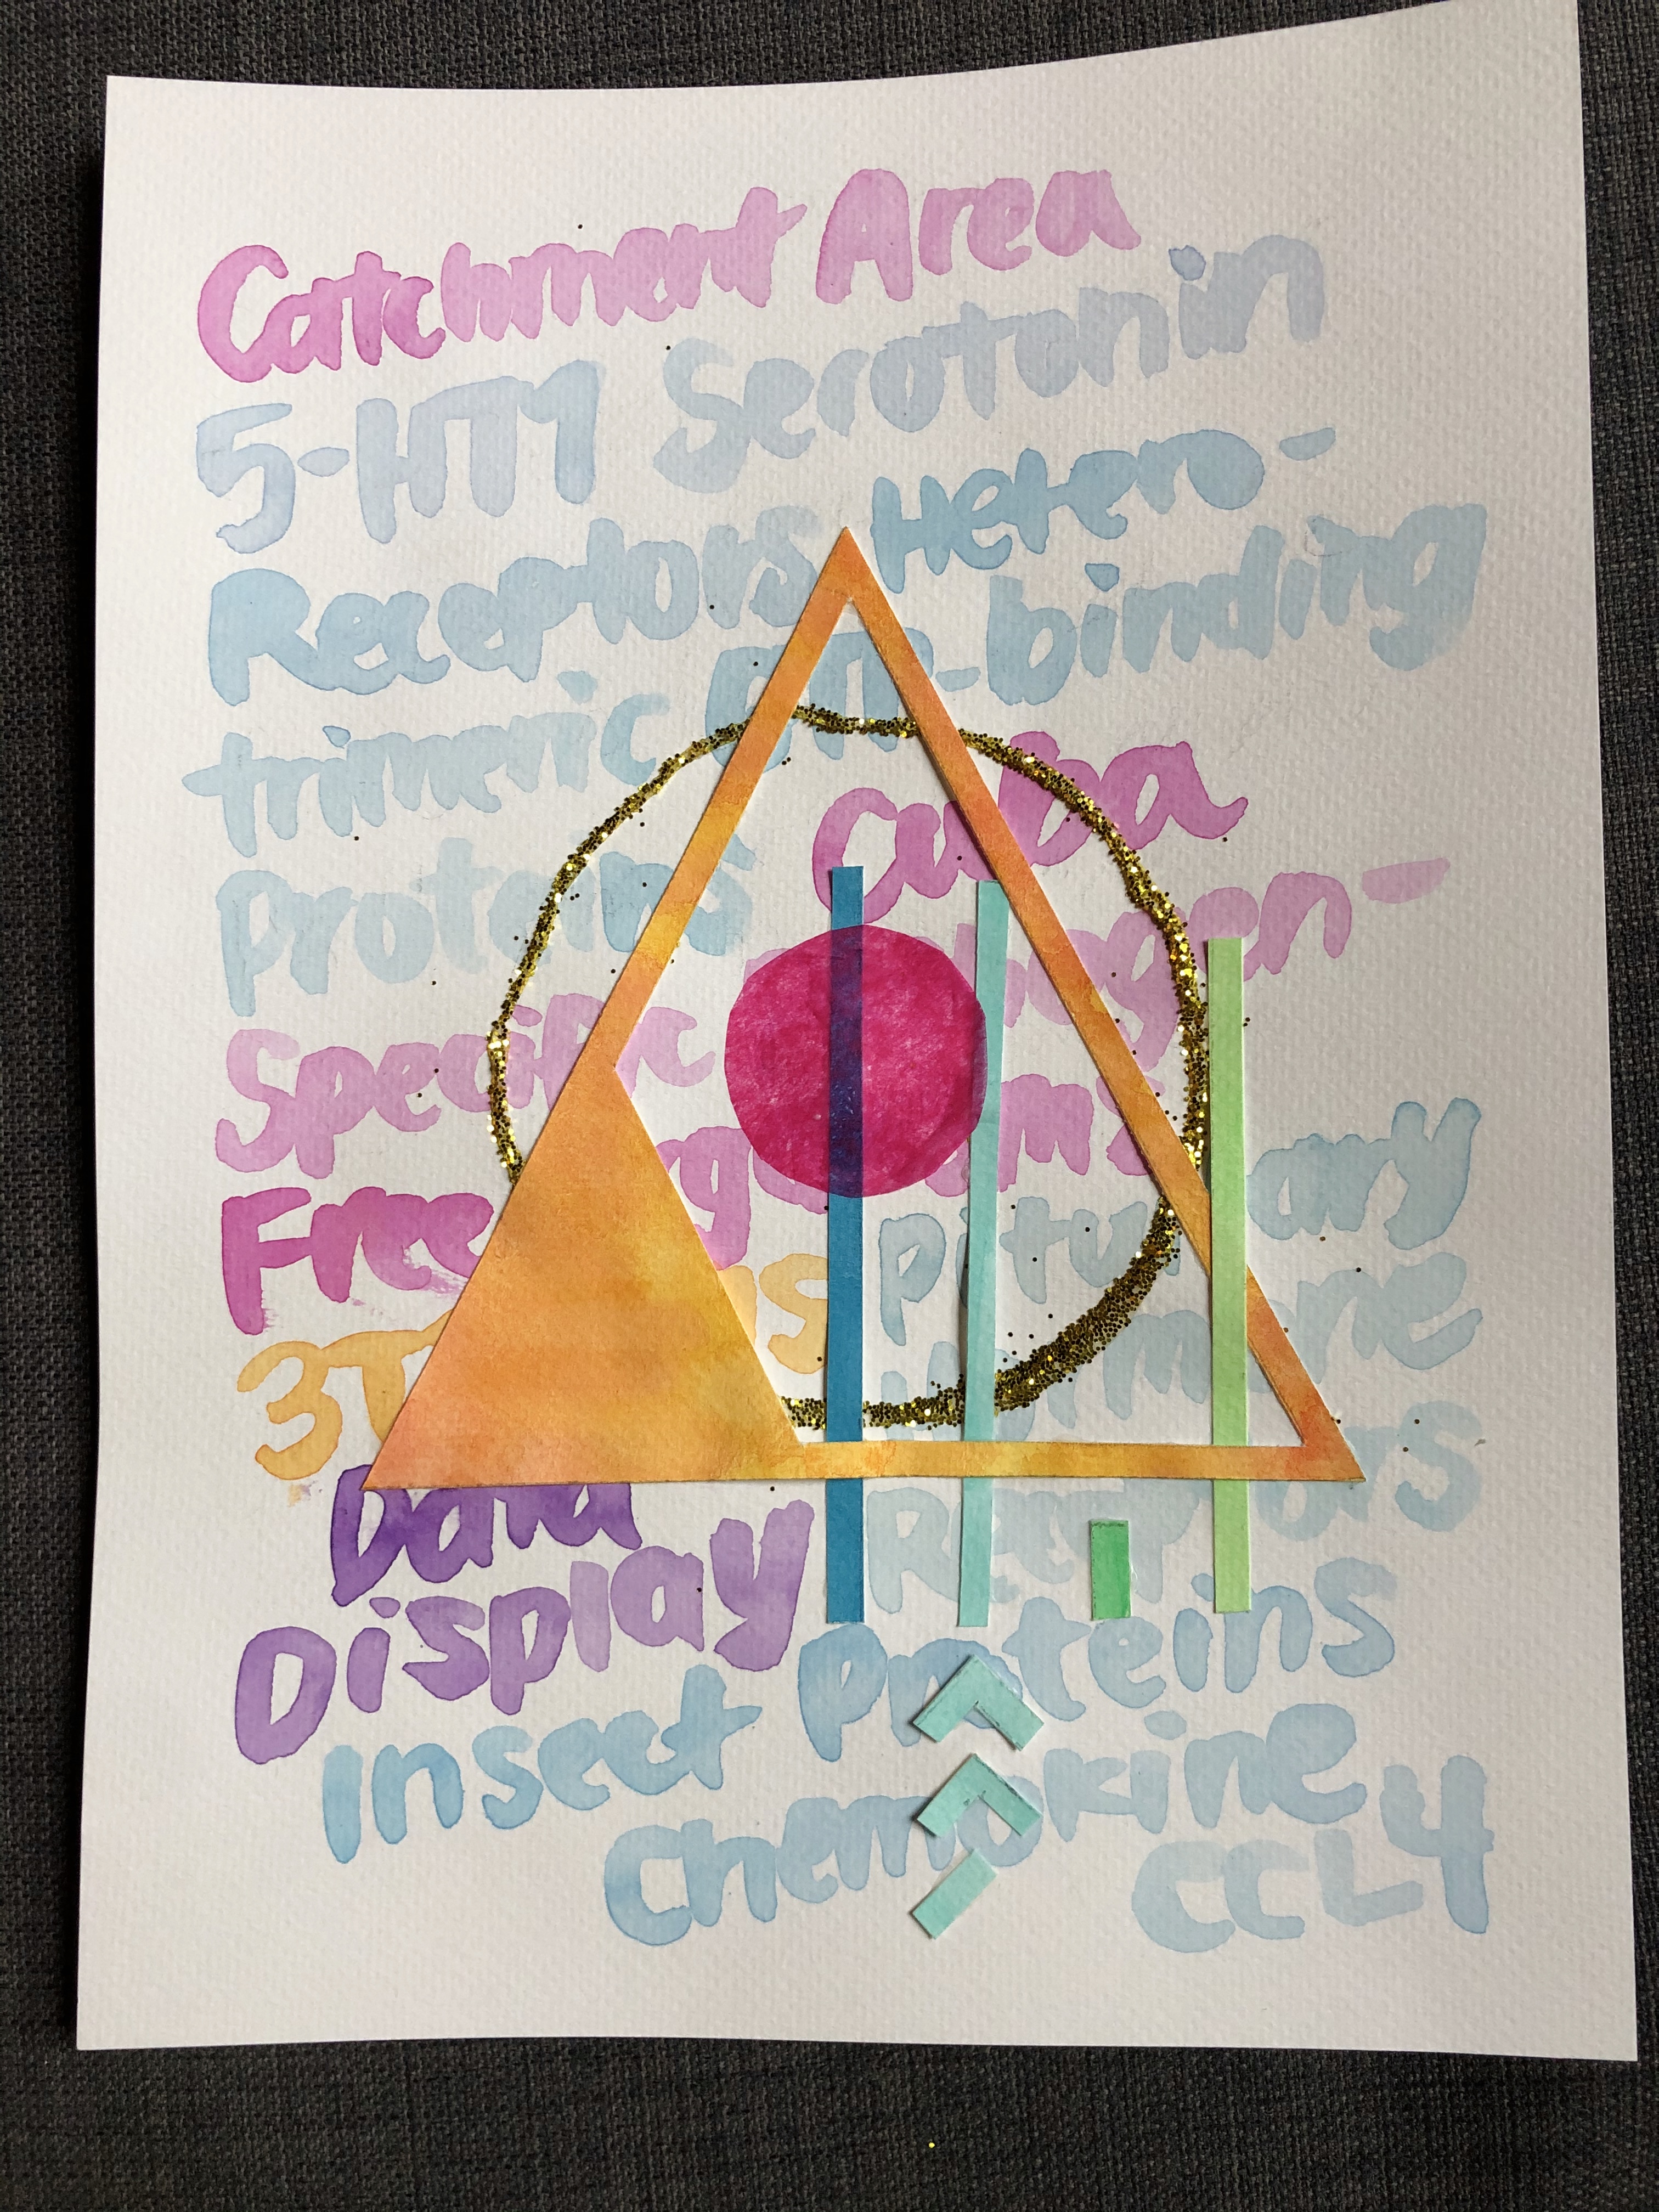 Catchment Area
5-HT1 Serotonin
Receptors Hetero-
trimeric GTP-binding
Proteins Cuba
Specific Pathogen-
Free Organisms
Pituitary
Hormone
Data Receptors
Display
Insect Proteins
Chemokine
CCL4